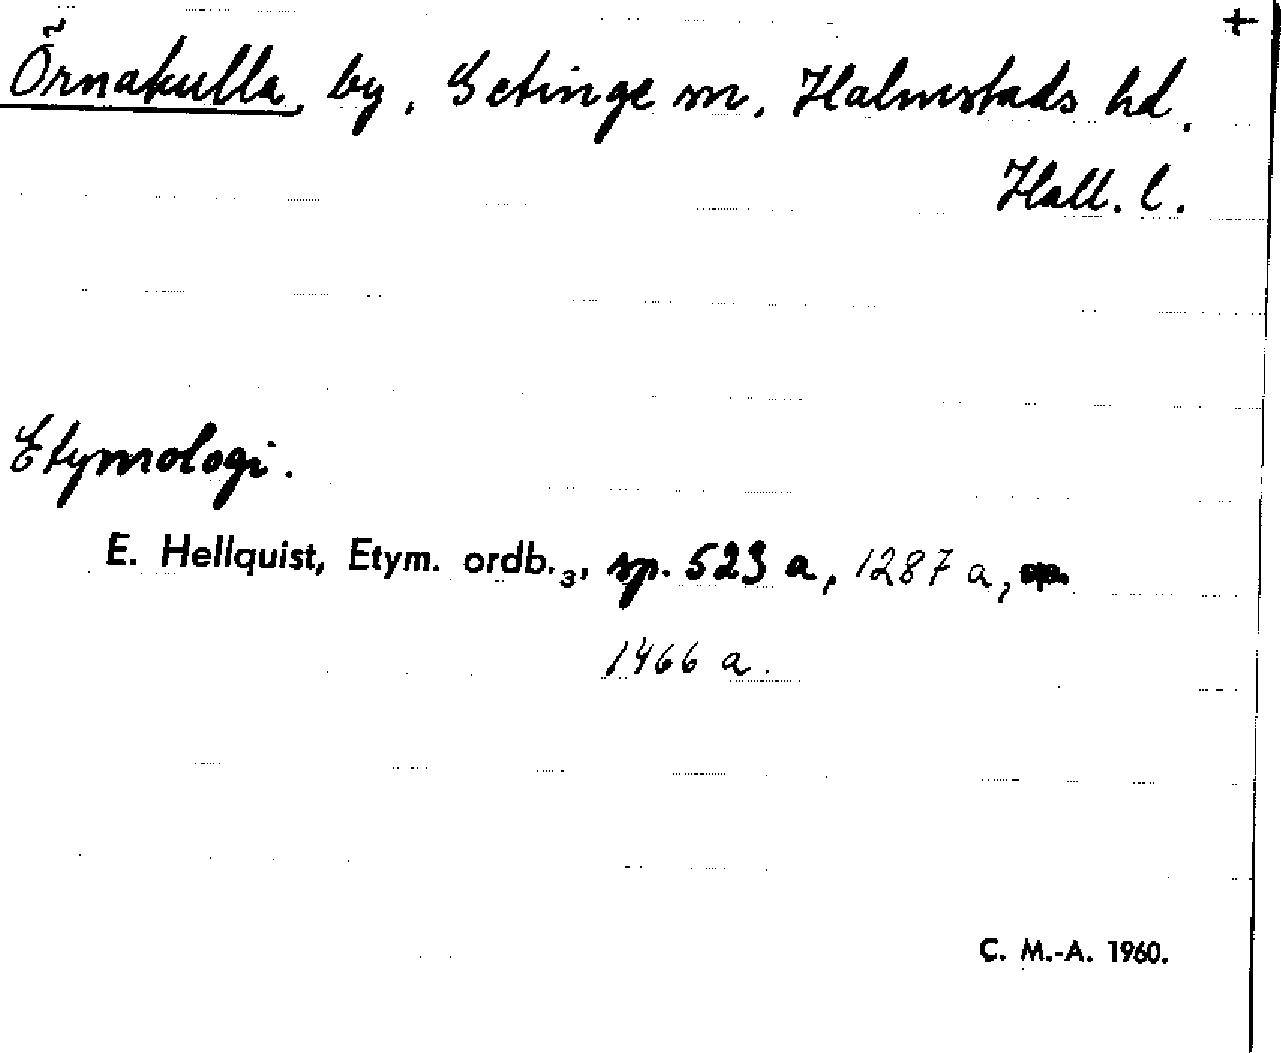 +
Örnakulla by, Getinge sn, Halmstads hd.
Hall. l.
Etymologi.
E. Hellquist, Etym. ordb.₃, sp. 523 a, 1287 a,
1466 a.
C. M.-A. 1960.